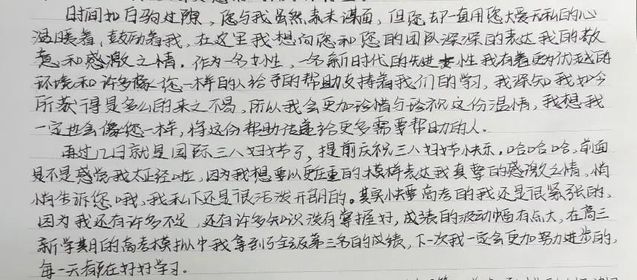 时间如白驹过隙，您与我虽然素未谋面，但您却一直用您大爱无私的心
温暖着，鼓励着我，在这里我想向您和您的团队深深的表达我的敬
意和感激之情。作为一名女性，一名新时代的先进女性我有着更好优越的
环境和许多像您一样的人给予的帮助支持着我们的学习，我深知我如今
所获得是多么的来之不易，所以我会更加珍惜与珍视这份温情，我想我
一定也会像您一样，将这份帮助传递给更多需要帮助的人。
再过几日就是国际三八妇女节了，提前庆祝三八妇女节快乐，哈哈哈，前面
是不是感觉我太正经啦，因为我想要以庄重的模样表达我真挚的感激之情，悄
悄告诉您哦，我私下还是很活泼开朗的。其实快要高考的我还是很紧张的，
因为我还有许多不足，还有许多知识没有掌握好，成绩的波动幅有点大，在高三
新学期的高考模拟中我拿到了全级第三名的成绩，下一次我一定会更加努力进步的，
每一天都在好好学习。